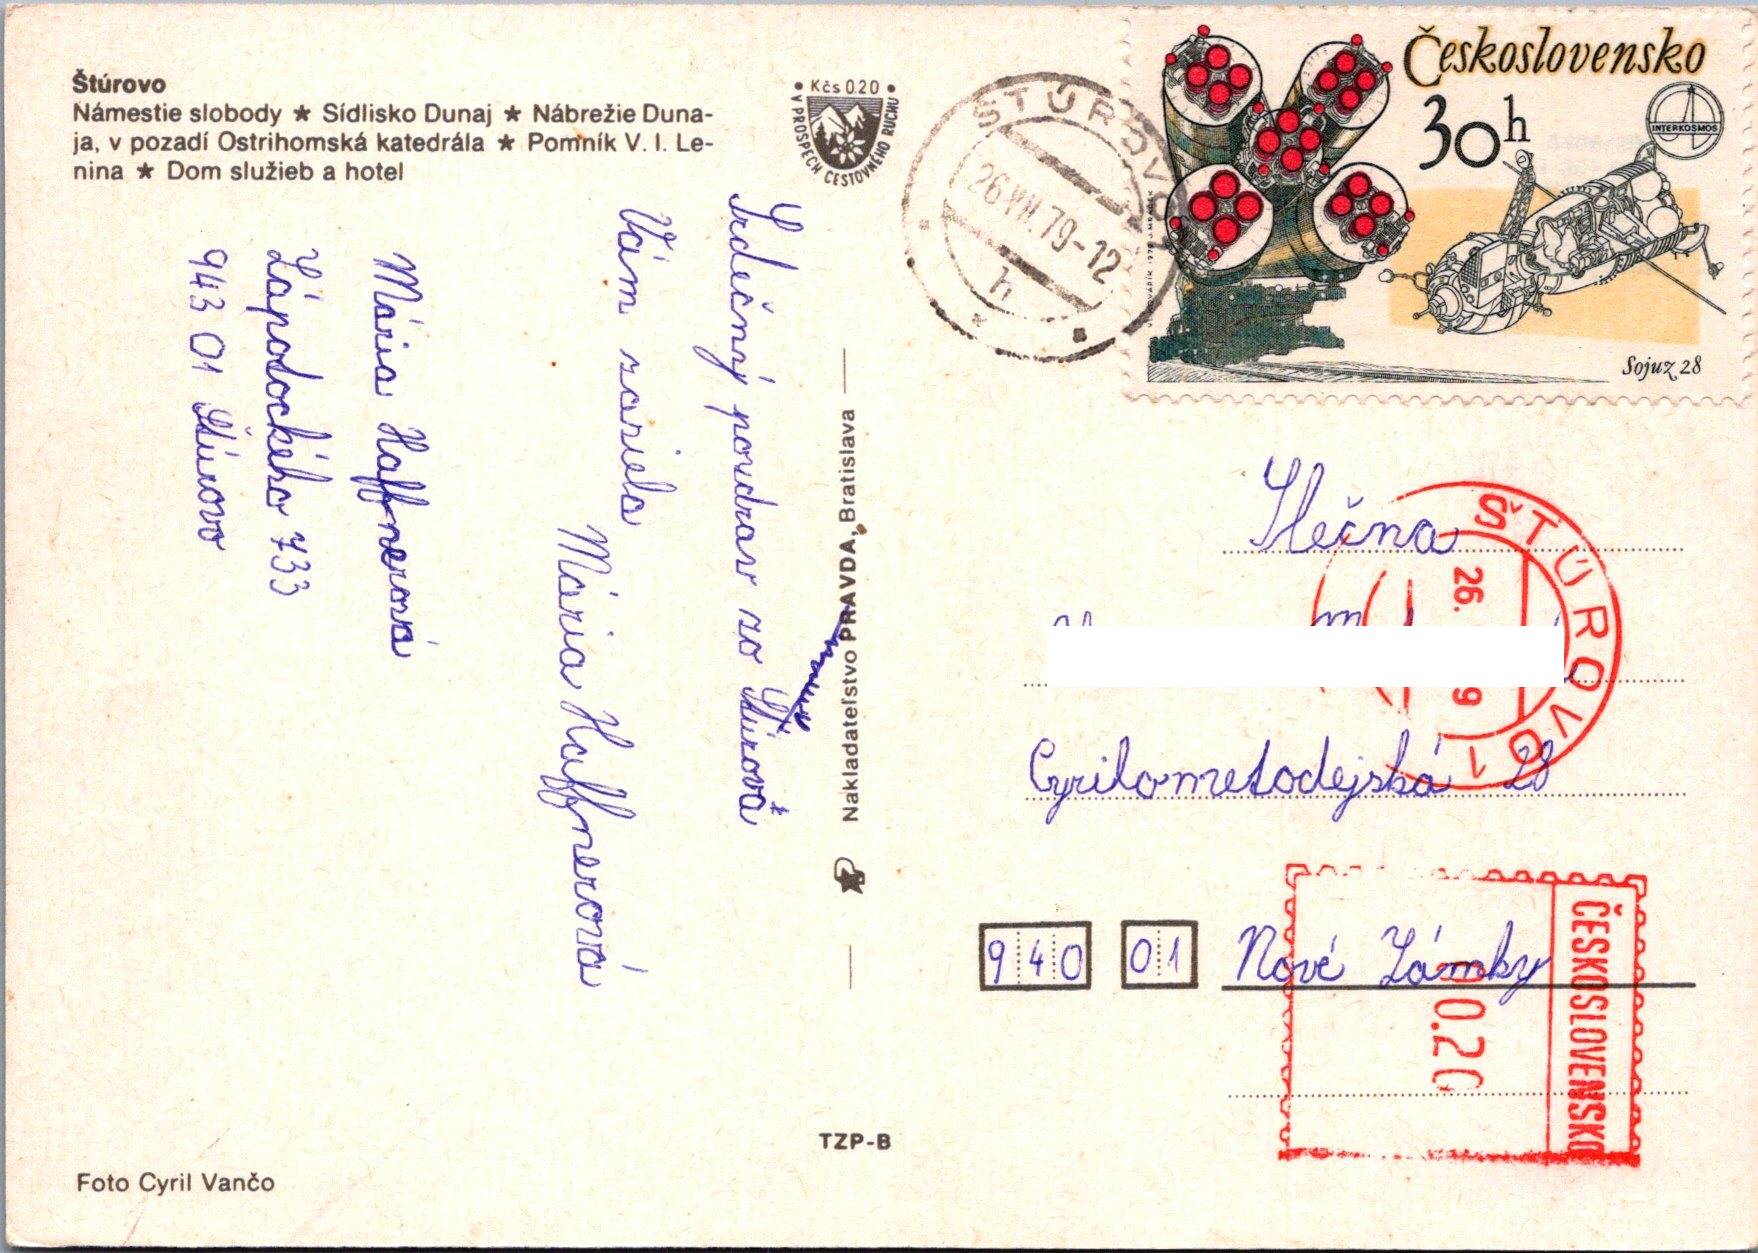 Štúrovo
Námestie slobody ★ Sídlisko Dunaj ★ Nábrežie Duna-
ja, v pozadí Ostrihomská katedrála ★ Pomník V. I. Le-
nina ★ Dom služieb a hotel
• Kčs 0.20 •
V PROSPECH CESTOVNÉHO RUCHU
Srdečný pozdrav zo Štúrova
Vám zasiela
Mária Haffnerová
Mária Haffnerová
Zápotockého 733
943 01 Štúrovo
Nakladateľstvo PRAVDA, Bratislava
TZP-B
Foto Cyril Vančo
ŠTÚROVO
26.VII.79-12
h
Československo
30h
INTERKOSMOS
Sojuz 28
Slečna
Cyrilometodejská 28
940 01 Nové Zámky
ŠTÚROVO 1
26.
9
ČESKOSLOVENSKO
00.20